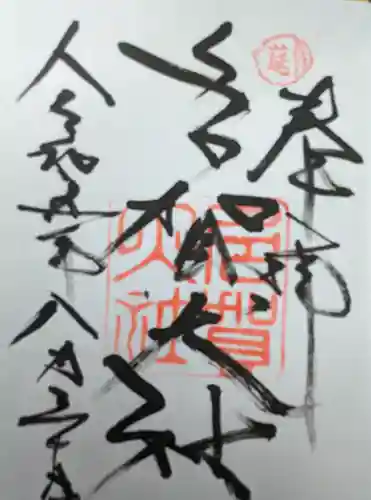 莚
奉拝
多賀大社
多賀大社
令和五年八月三十日